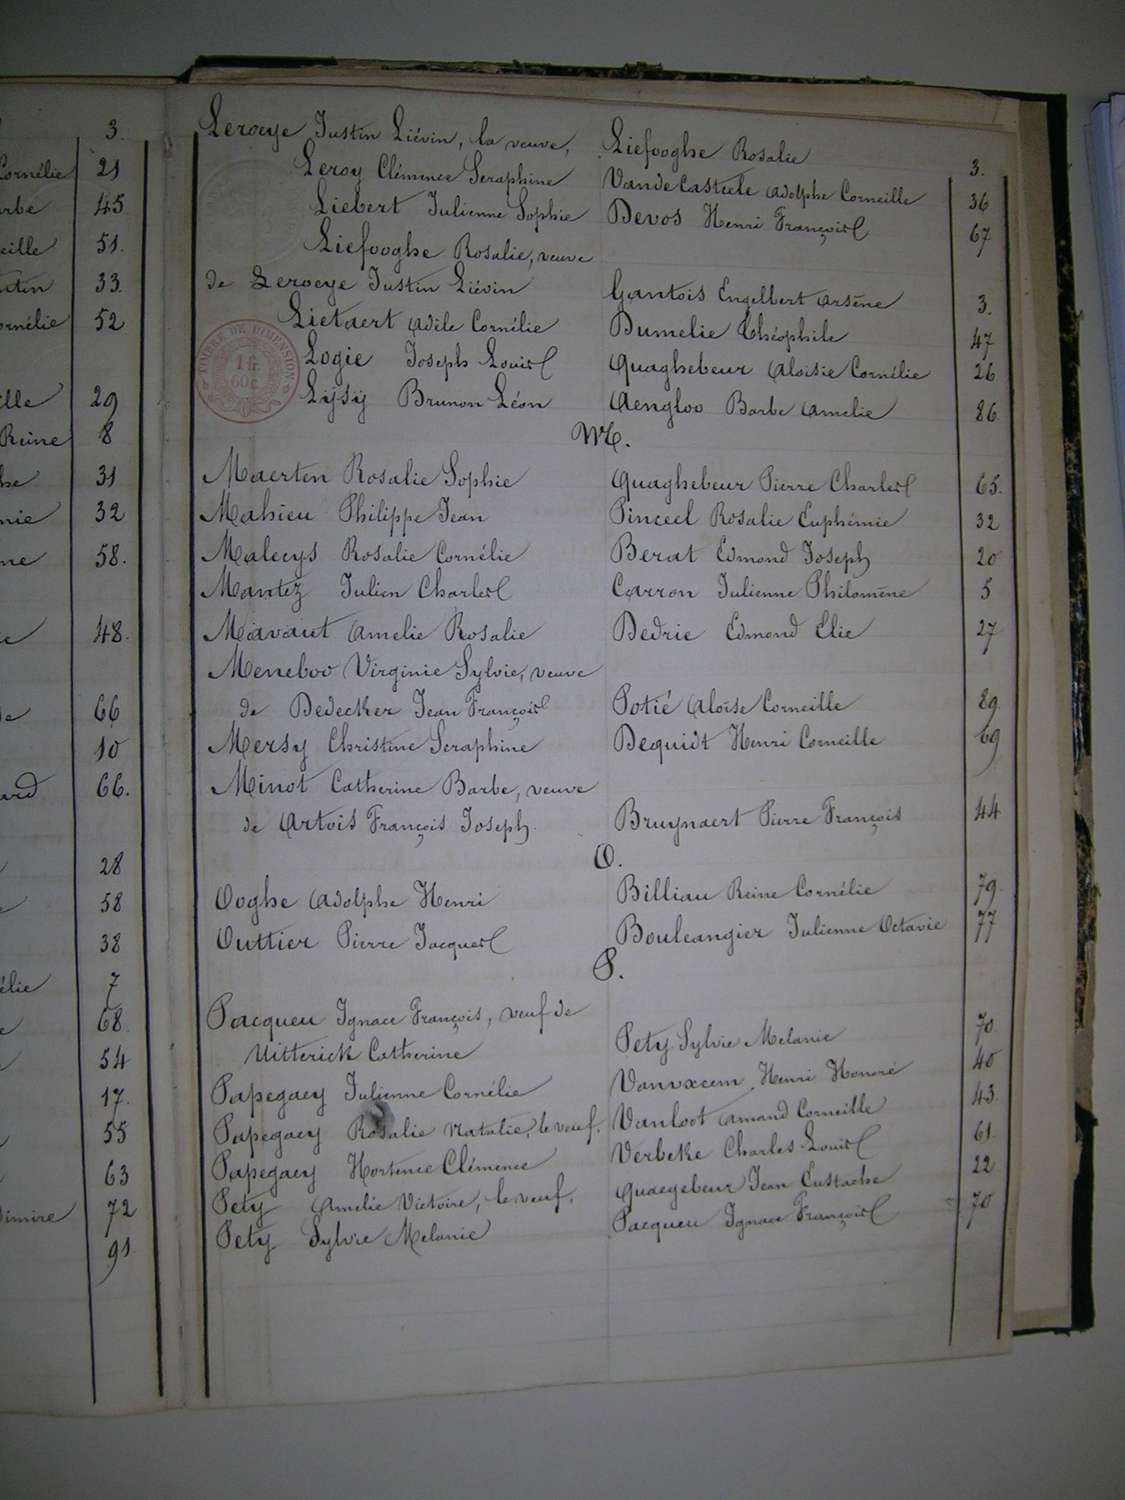 3.
Cornélie 21
45
51.
33
52
29
Reine 8
31
32
58.
48.
66
10
66.
28
58
38
7
68
54
17.
55
63
72
91
Leroeye Justin Liévin, la veuve, Liefooghe Rosalie 3.
Leroy Clémence Seraphine Vandecasteele Adolphe Corneille 36
Liebert Julienne Sophie Devos Henri François 67
Liefooghe Rosalie, veuve
de Leroeye Justin Liévin Gantois Engelbert Arsène 3.
Lietaert Adèle Cornélie Dumelie Théophile 47
TIMBRE DE DIMENSION
1 fr.
60 c.
Logie Joseph Louis Quaghebeur Aloisie Cornélie 26
Lysy Brunon Léon Aengloo Barbe Amelie 86
M.
Maerten Rosalie Sophie Quaghebeur Pierre Charles 65.
Mahieu Philippe Jean Pinceel Rosalie Euphémie 32
Malerys Rosalie Cornélie Berat Edmond Joseph 20
Mantez Julien Charles Carron Julienne Philomène 5
Mavaut Amelie Rosalie Dedrie Edmond Elie 27
Meneboo Virginie Sylvie, veuve
de Dedecker Jean François Potié Aloïse Corneille 89
Mersy Christine Seraphine Dequidt Henri Corneille 69
Minot Catherine Barbe, veuve
de Artois François Joseph. Bruynaert Pierre François 44
O.
Ooghe Adolphe Henri Billiau Reine Cornélie 79
Outtier Pierre Jacques Bouleangier Julienne Octavie 77
P.
Pacqueu Ignace François, veuf de
Uitterick Catherine Pety Sylvie Melanie 70
Papegaey Julienne Cornélie Vanuxeem Henri Honoré 40
Papegaey Rosalie Natalie, le veuf. Vanloot Amand Corneille 43
Papegaey Hortence Clémence Verbeke Charles Louis 61
Pety Amelie Victoire, le veuf. Quaegebeur Jean Eustache 22
Pety Sylvie Melanie Pacqueu Ignace François 70